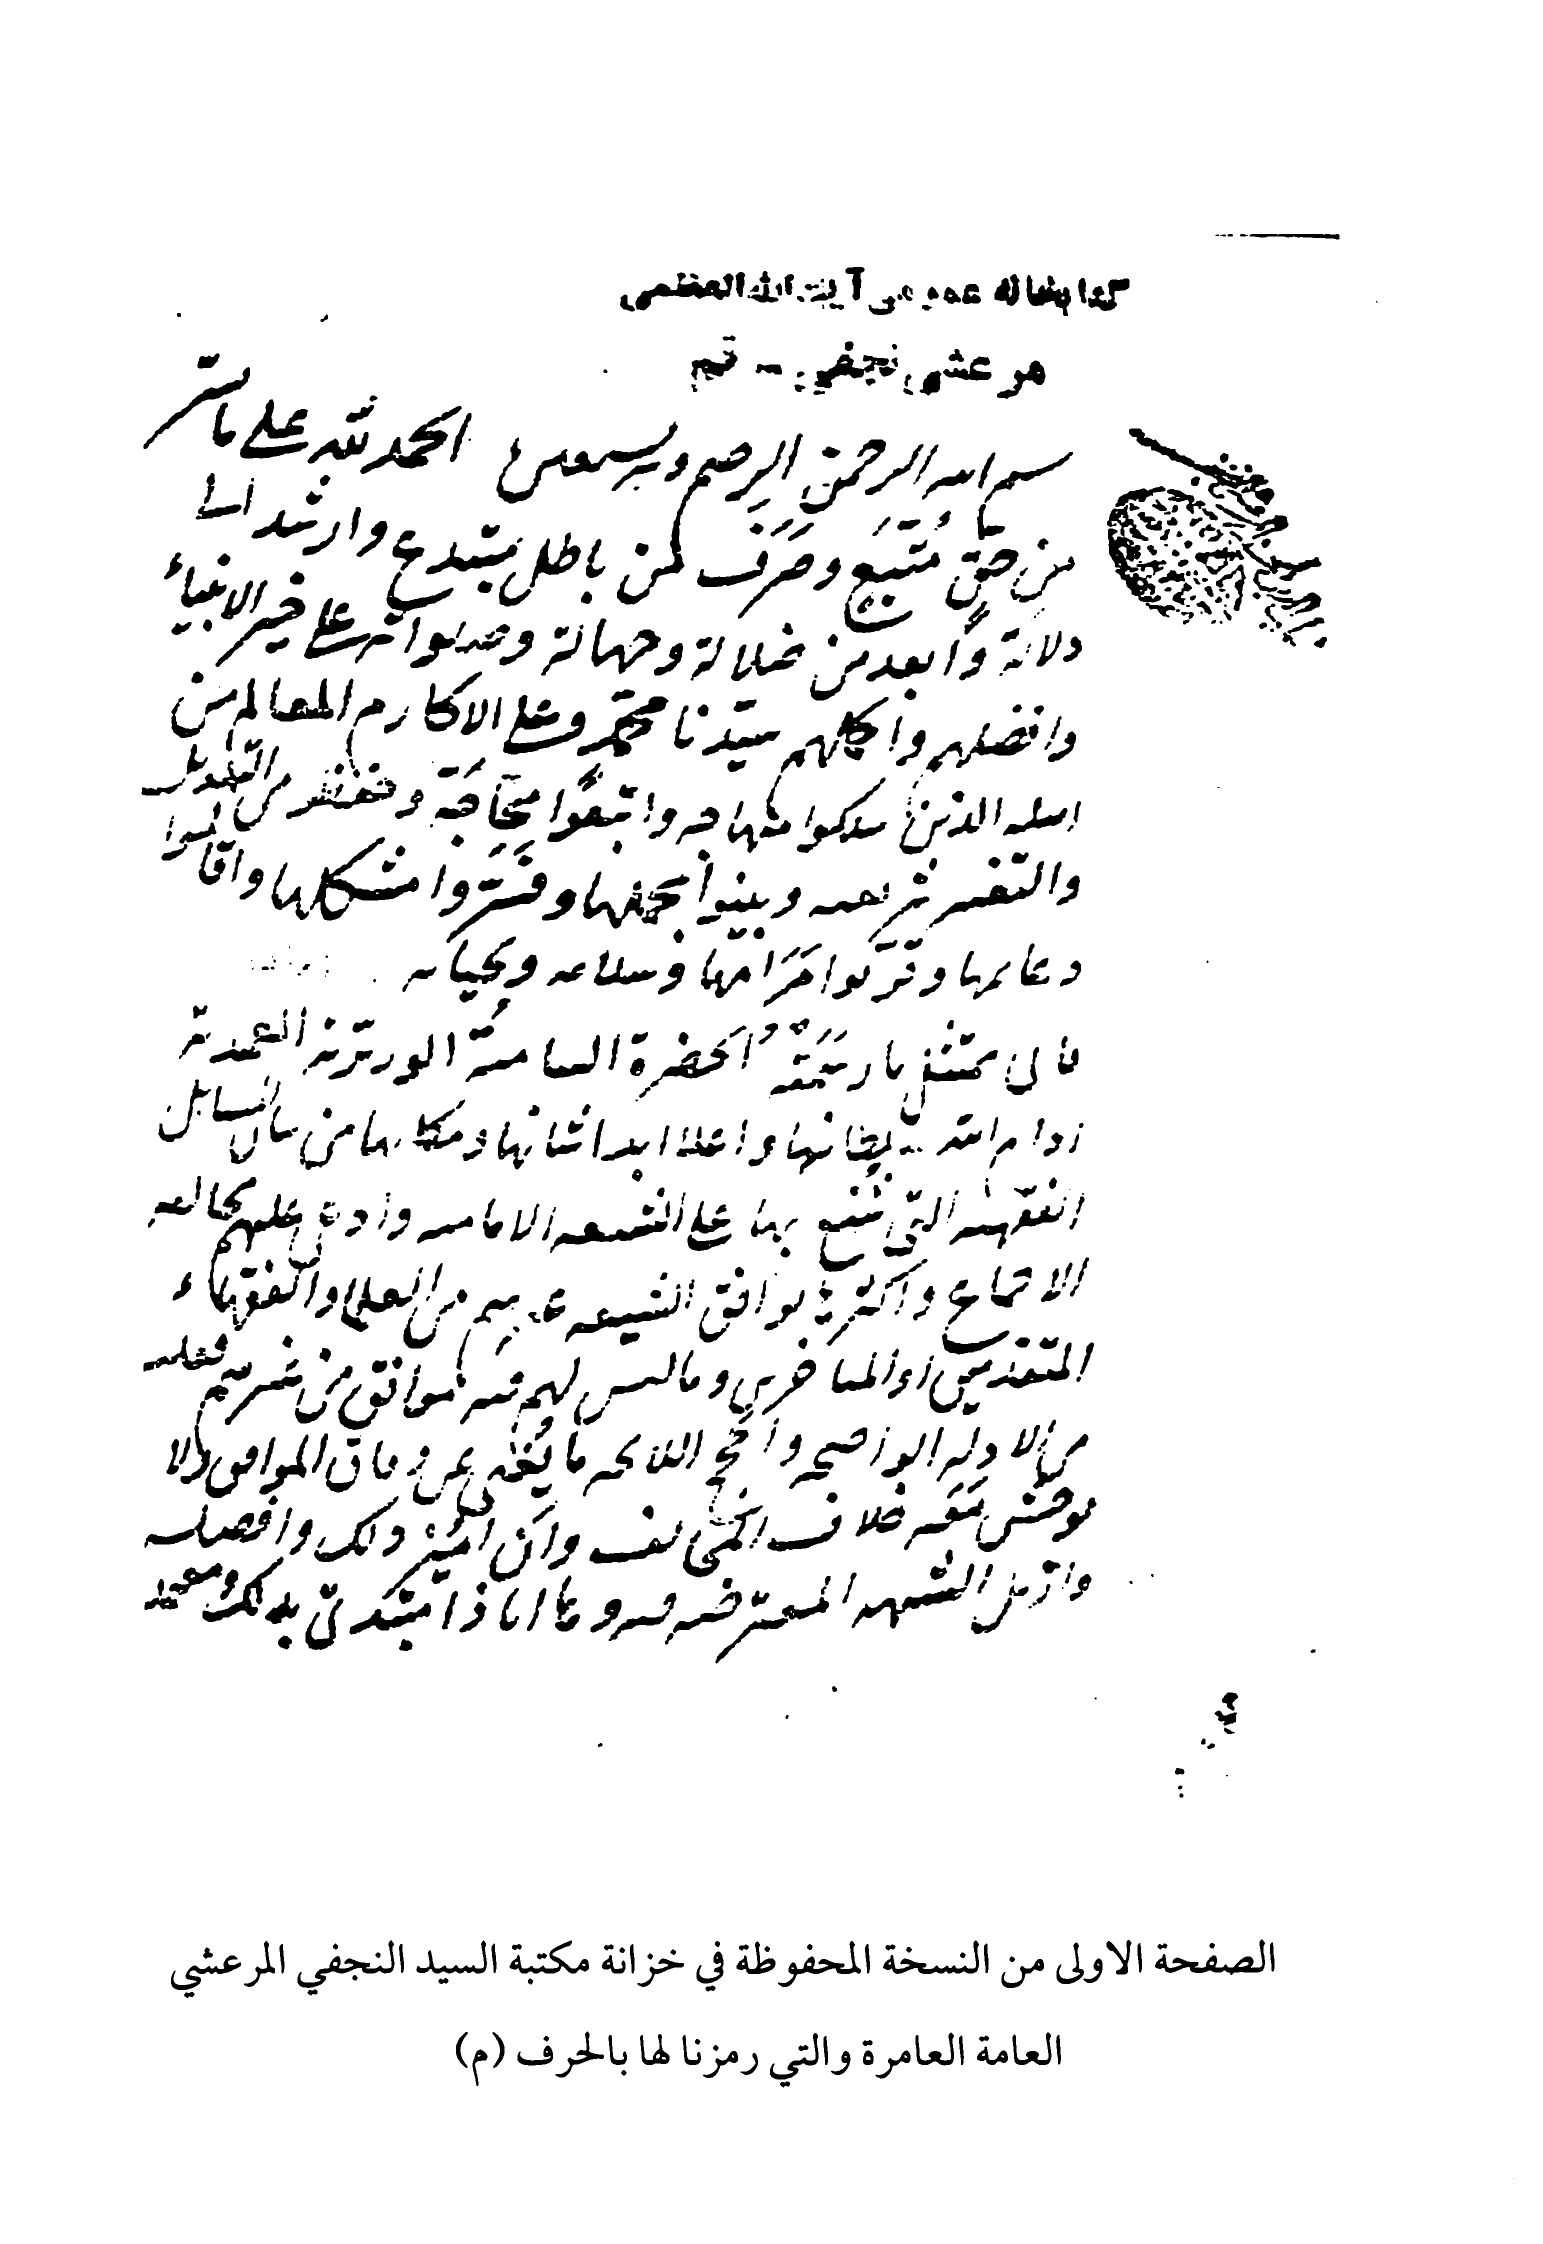 كتابخانه عمومى آيت الله العظمى
مرعشى نجفى - قم
بسم الله الرحمن الرحيم وبه نستعين الحمد لله على ما يسّر
من حقّ مُتّبَع وصَرَف من باطل مبتدع وارشد الى
دلالة وأبعد من ضلالة وجهالة وصلواته على خير الانبياء
وافضلهم واكملهم سيّدنا محمّد وعلى الاكارم المعالم من
اهله الذين سلكوا منهاجه واتبعُوا
والتفسير شريعته وبينوا مجملها وفسّروا مشكلها واقاموا
دعايمها وقرّبوا مَرَامَها وسلامه وتحياته
فانى ممتثل ما رسَمَتْهُ الحَضرة السامية الوزيرية العميدية
ادام الله سلطانها واعلا ابدا شانها ومكانها من بيان المسايل
الفقهيه التى شُنّع بها على الشيعه الاماميه وادعى عليهم مخالفه
الاجماع واكثرها يوافق الشيعه غيرهم من العلماء والفقهاء
المتقدمين او المتاخرين وما ليس لهم فيه موافق من غيرهم فعليه
من الادله الواضحه والحُجَج اللائحه ما يُغنى عن وفاق الموافق ولا
يوحش مَعَه خلاف المخالف وان ابيّن ذلك وافصله
وازيل الشبهه المعترضه فيه وها انا ذا مبتدئ بذلك ومعتمد
الصفحة الاولى من النسخة المحفوظة في خزانة مكتبة السيد النجفي المرعشي
العامة العامرة والتي رمزنا لها بالحرف (م)